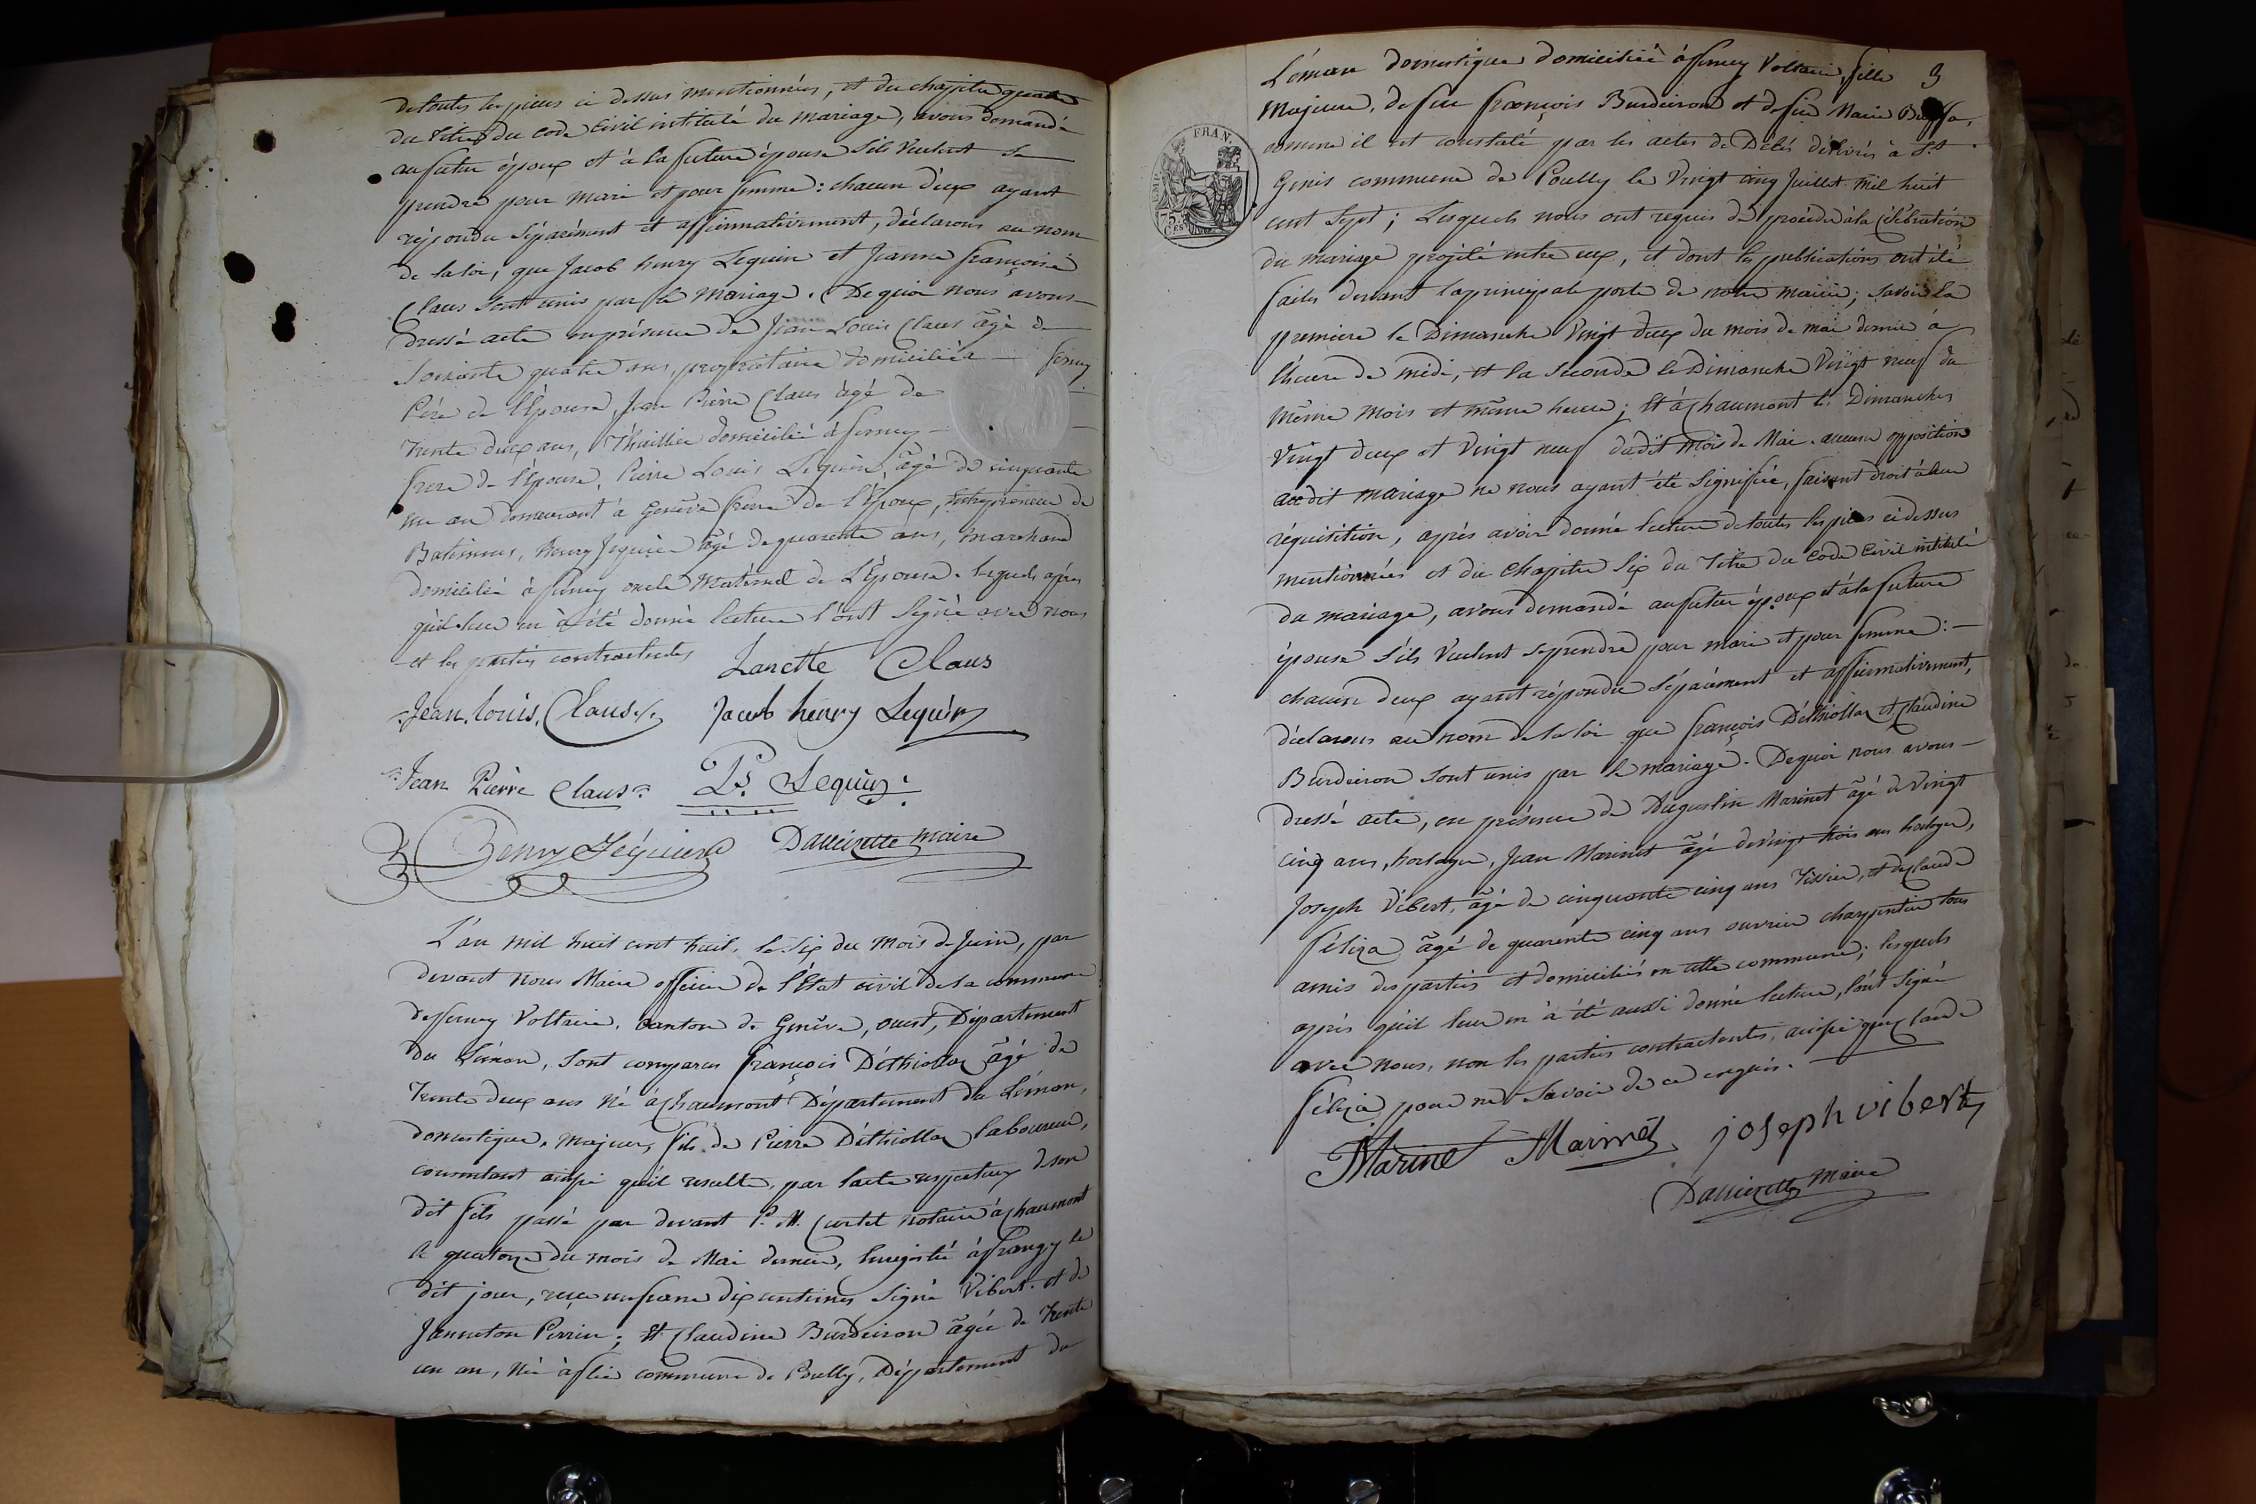 de toutes les pieces ci dessus mentionnées, et du chapitre
du Titre du code Civil intitulé du mariage, avons demandé
au futur époux et à la future épouse s'ils veulent se
prendre pour mari et pour femme : chacun d'eux ayant
répondu séparément et affirmativement, déclarons au nom
de la loi, que Jacob henry Lequin et Jeanne françoise
Claus sont unis par le mariage. De quoi nous avons
dressé acte en présence de Jean Louis Claus âgé de
Soixante quatre ans, propriétaire domicilié à ferney
Père de l'Epouse, Jean Pierre Claus âgé de
Trente deux ans, domicilié à ferney
frere de l'épouse, Pierre Louis Lequin, âgé de cinquante
un an demeurant à Genève frere de l'Epoux, Entrepreneur de
Batimens, henry Jequier âgé de quarente ans, Marchand
domicilié à ferney oncle Maternel de L'Epouse. lesquels après
qu'il leur en à été donné lecture l'ont Signé avec nous
et les parties contractantes
Janette Claus
Jean Louis Claus Jacob henry Lequin
Jean Pierre Claus Ls. Lequin
henry Jéquier Maire
L'an mil huit cent huit, le Six du mois de Juin, par
devant nous Maire officier de l'Etat civil de la commune
de ferney Voltaire, canton de Genêve, ouest, Département
du Léman, sont comparus françois Déthiollaz âgé de
Trente deux ans Né à Chaumont Département du Léman,
domestique, majeur, fils de Pierre Déthiollaz laboureur,
consentant ainsi qu'il resulte, par l'acte respectueux de son
dit fils passé par devant P. M. Curtet notaire à Chaumont
le quatorze du mois de Mai dernier, Enregistré à frangy le
dit jour, reçu un franc dix centimes Signé Vibert. et de
Janneton Perrin ; Et Claudine Burdeiron âgée de Trente
un an, Née à commune de Poully, Département du
3
Léman domestique domiciliée à ferney Voltaire, fille
Majeure, de feu françois Burdeiron et de feue Marie
comme il est constaté par les actes de Décès délivrés à St.
Genis commune de Poully le Vingt cinq Juillet mil huit
cent Sept ; Lesquels nous ont requis de procéder à la Célébration
du mariage projeté entre eux, et dont les publications ont été
faites devant la principale porte de notre mairie ; Savoir la
premiere le Dimanche Vingt deux du mois de mai dernier à
l'heure de midi, et la Seconde le Dimanche Vingt neuf du
même mois et même heure ; Et à Chaumont les Dimanches
Vingt deux et Vingt neuf dudit mois de Mai. aucune opposition
audit mariage ne nous ayant été Signifiée, faisant droit à leur
réquisition, après avoir donné lecture de toutes les pieces ci dessus
mentionnées et du Chapitre Six du Titre du Code Civil intitulé
du mariage, avons demandé au futur époux et à la future
épouse s'ils Veulent se prendre pour mari et pour femme :
chacun deux ayant répondu séparément et affirmativement,
déclarons au nom de la loi que françois Déthiollaz et Claudine
Burdeiron sont unis par le mariage. De quoi nous avons
dressé acte, en présence de Augustin Marinet âgé de Vingt
cinq ans, horloger, Jean Marinet âgé de vingt trois ans horloger,
Joseph Vibert, âgé de cinquante cinq ans Tissier, et de Claude
féliza âgé de quarente cinq ans ouvrier charpentier tous
amis des parties et domiciliés en cette commune ; lesquels
après qu'il leur en à été aussi donné lecture, l'ont Signé
avec nous, non les parties contractantes, ainsi que Claude
féliza pour ne Savoir de ce enquis.
Marinet Marinet joseph vibert
Maire
FRAN.
EMP.
75
CES